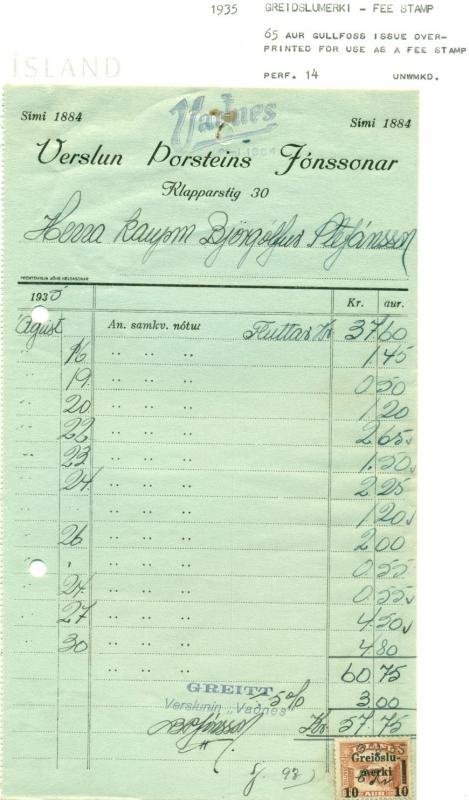 1935 GREIDSLUMERKI - FEE STAMP
65 AUR GULLFOSS ISSUE OVER-
PRINTED FOR USE AS A FEE STAMP
ÍSLAND
PERF. 14 UNWMKD.
Vaðnes
Sími 1884 Sími 1884
Verslun Þorsteins Jónssonar
Klapparstíg 30
Herra kaupm Björgólfur Stefánsson
1935 Kr. aur.
Ágúst An. samkv. nótu: Fluttar Kr 37 60
16 " " " 1 45
19 " " " 0 50
20 " " " 1 20
22 " " " 2 65
23 " " " 1 50
24 " " " 2 25
" " " 1 20
26 " " " 2 00
" " " 0 55
24 " " " 0 55
27 " " " 4 50
30 " " " 4 80
" " " 60 75
GREITT
5% 3 00
Verslunin „Vaðnes"
Kr. 57 75
Greiðslu-
merki
10 10
AUR